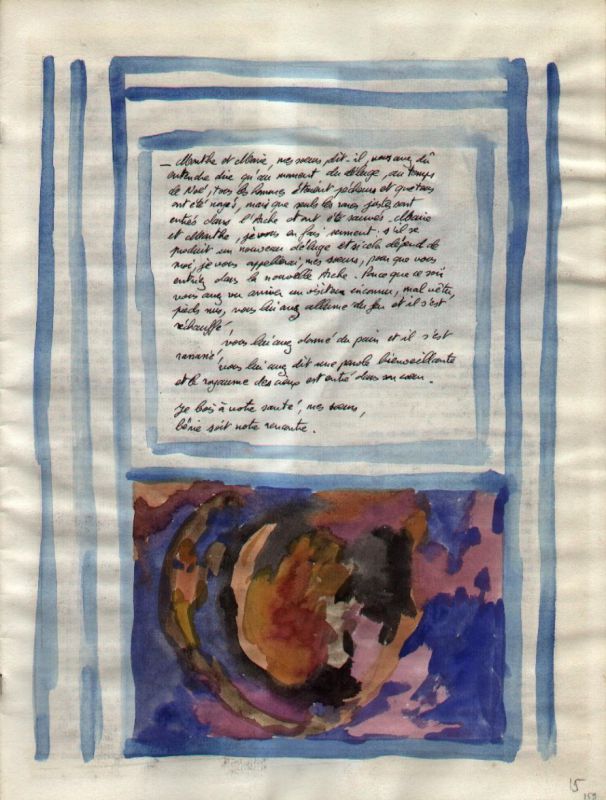 – Marthe et Marie, mes sœurs, dit-il, vous avez dû
entendre dire qu'au moment du déluge, au temps
de Noé, tous les hommes étaient pécheurs et que tous
ont été noyés, mais que seuls les rares justes sont
entrés dans l'Arche et ont été sauvés. Marie
et Marthe, je vous en fais serment : s'il se
produit un nouveau déluge et si cela dépend de
moi, je vous appellerai, mes sœurs, pour que vous
entriez dans la nouvelle Arche. Parce que ce soir
vous avez vu arriver un visiteur inconnu, mal vêtu,
pieds nus, vous lui avez allumé du feu et il s'est
réchauffé,
vous lui avez donné du pain et il s'est
ranimé,
vous lui avez dit une parole bienveillante
et le royaume des cieux est entré dans son cœur.
Je bois à votre santé, mes sœurs,
bénie soit notre rencontre.
15
159